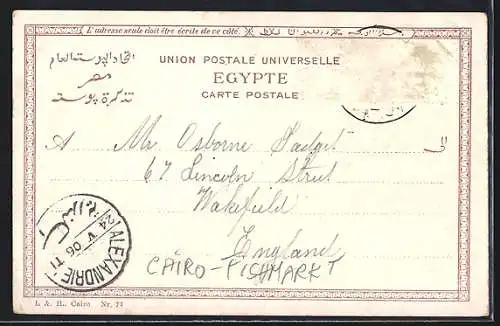 L'adresse seule doit être écrite de ce côté.
اتحاد البوستة العام
مصر
تذكرة بوسته
UNION POSTALE UNIVERSELLE
EGYPTE
CARTE POSTALE
A Mr Osborne Padget الى
67 Lincoln Street
Wakefield
England
CAIRO - FISHMARKT
ALEXANDRIE
24 V 06 TI
L. & H., Cairo Nr. 71